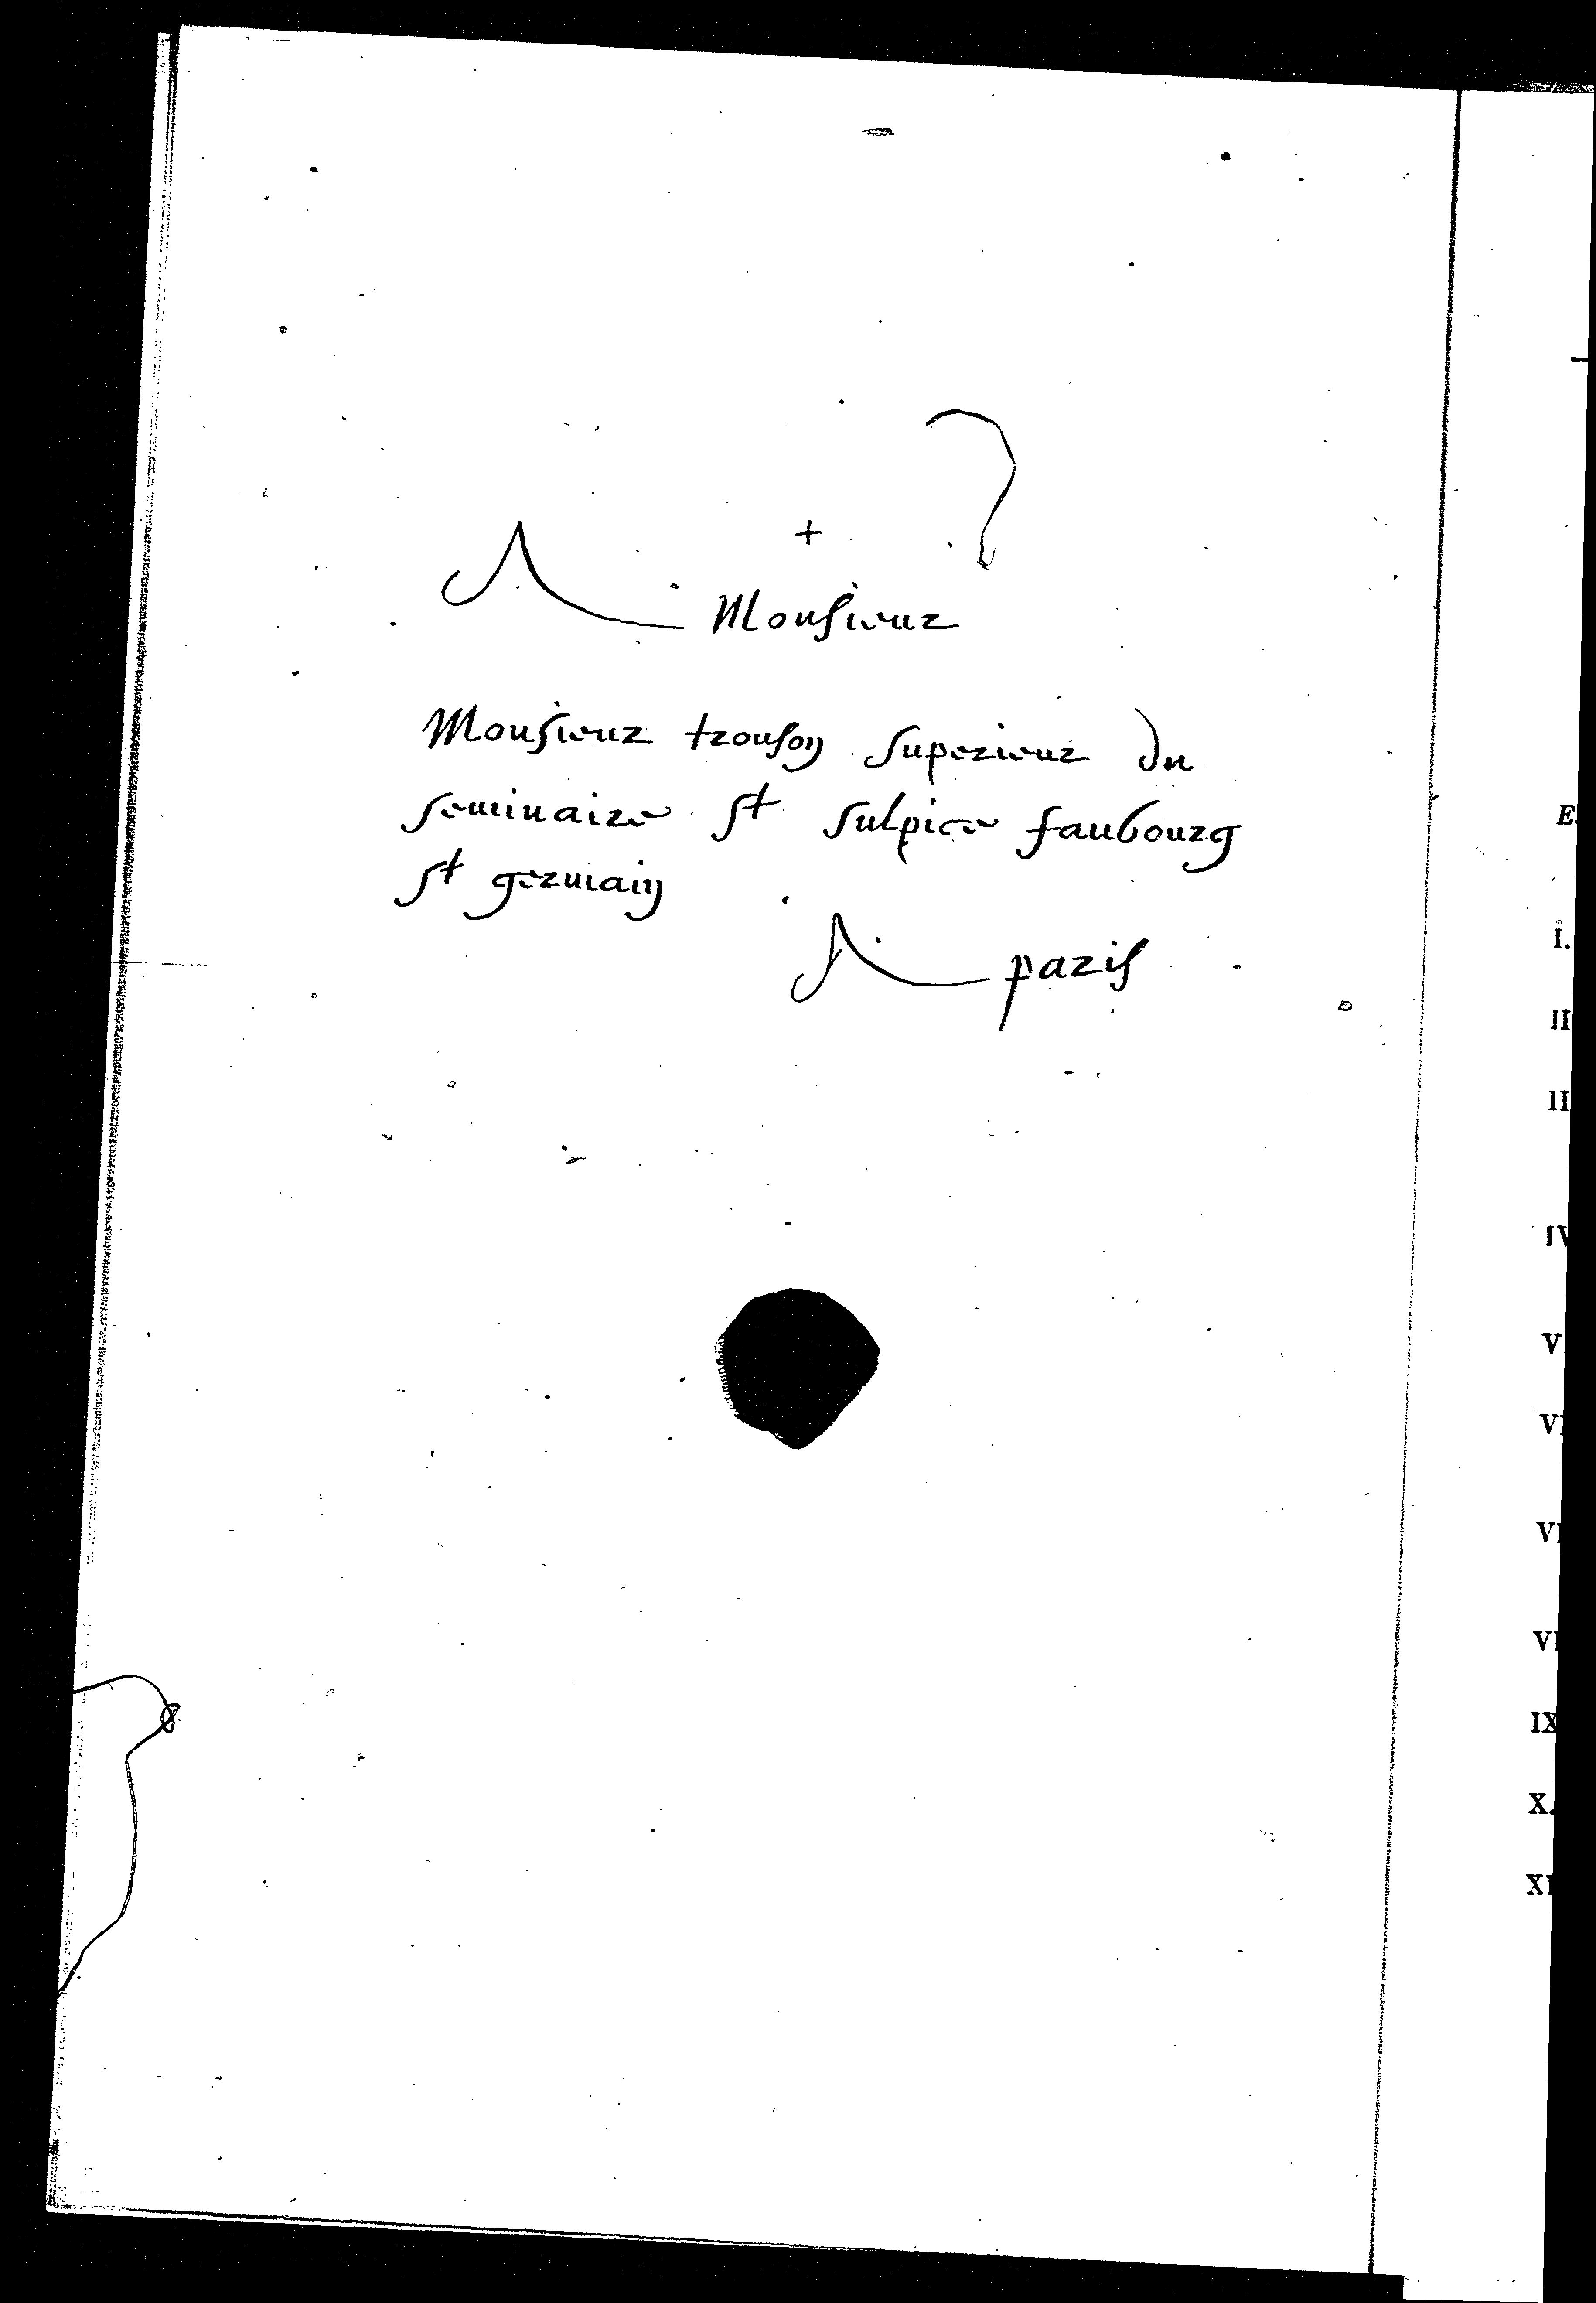 +
A Monsieur
Monsieur tronson superieur du
seminaire st sulpice faubourg
st germain
A paris
E.
I.
II
II
IV
V
VI
VI
VI
IX
X.
XI